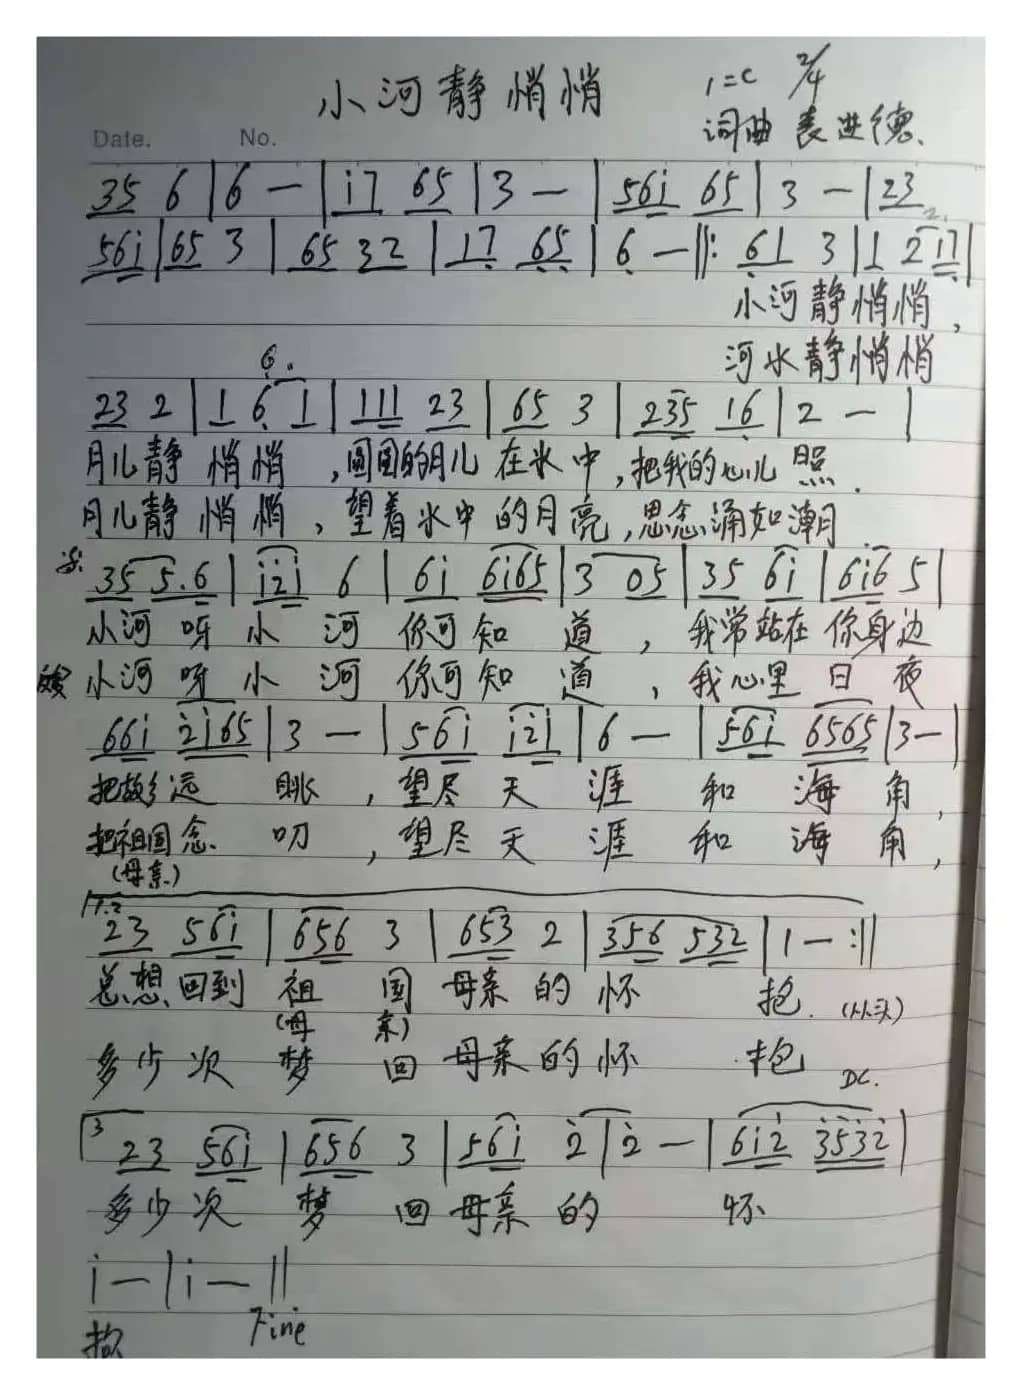 小河静悄悄
1=C 2/4
词曲 袁进德.
Date. No.
35 6 | 6 — | i7 65 | 3 — | 56i 65 | 3 — | 23
56i | 65 3 | 65 32 | 17 65 | 6 — ‖: 61 3 | 1 2 17 |
小河静悄悄,
河水静悄悄
6.
23 2 | 1 6 1 | 111 23 | 65 3 | 235 16 | 2 — |
月儿静悄悄,圆圆的月儿在水中,把我的心儿照.
月儿静悄悄,望着水中的月亮,思念涌如潮
35 5.6 | i2i 6 | 6i 6i65 | 3 05 | 35 6i | 6i6 5 |
小河呀小河你可知道,我常站在你身边
小河呀小河你可知道,我心里日夜
66i 2i65 | 3 — | 56i i2i | 6 — | 56i 6565 | 3— |
把故乡远眺,望尽天涯和海角,
把祖国念叨,望尽天涯和海角,
(母亲)
1.2
23 56i | 656 3 | 653 2 | 356 532 | 1 — :‖
总想回到祖国母亲的怀抱.(从头)
(母亲)
多少次梦回母亲的怀抱 DC.
3
23 56i | 656 3 | 56i 2 | 2 — | 6i2 3532 |
多少次梦回母亲的怀
i — | i — ‖
抱 Fine